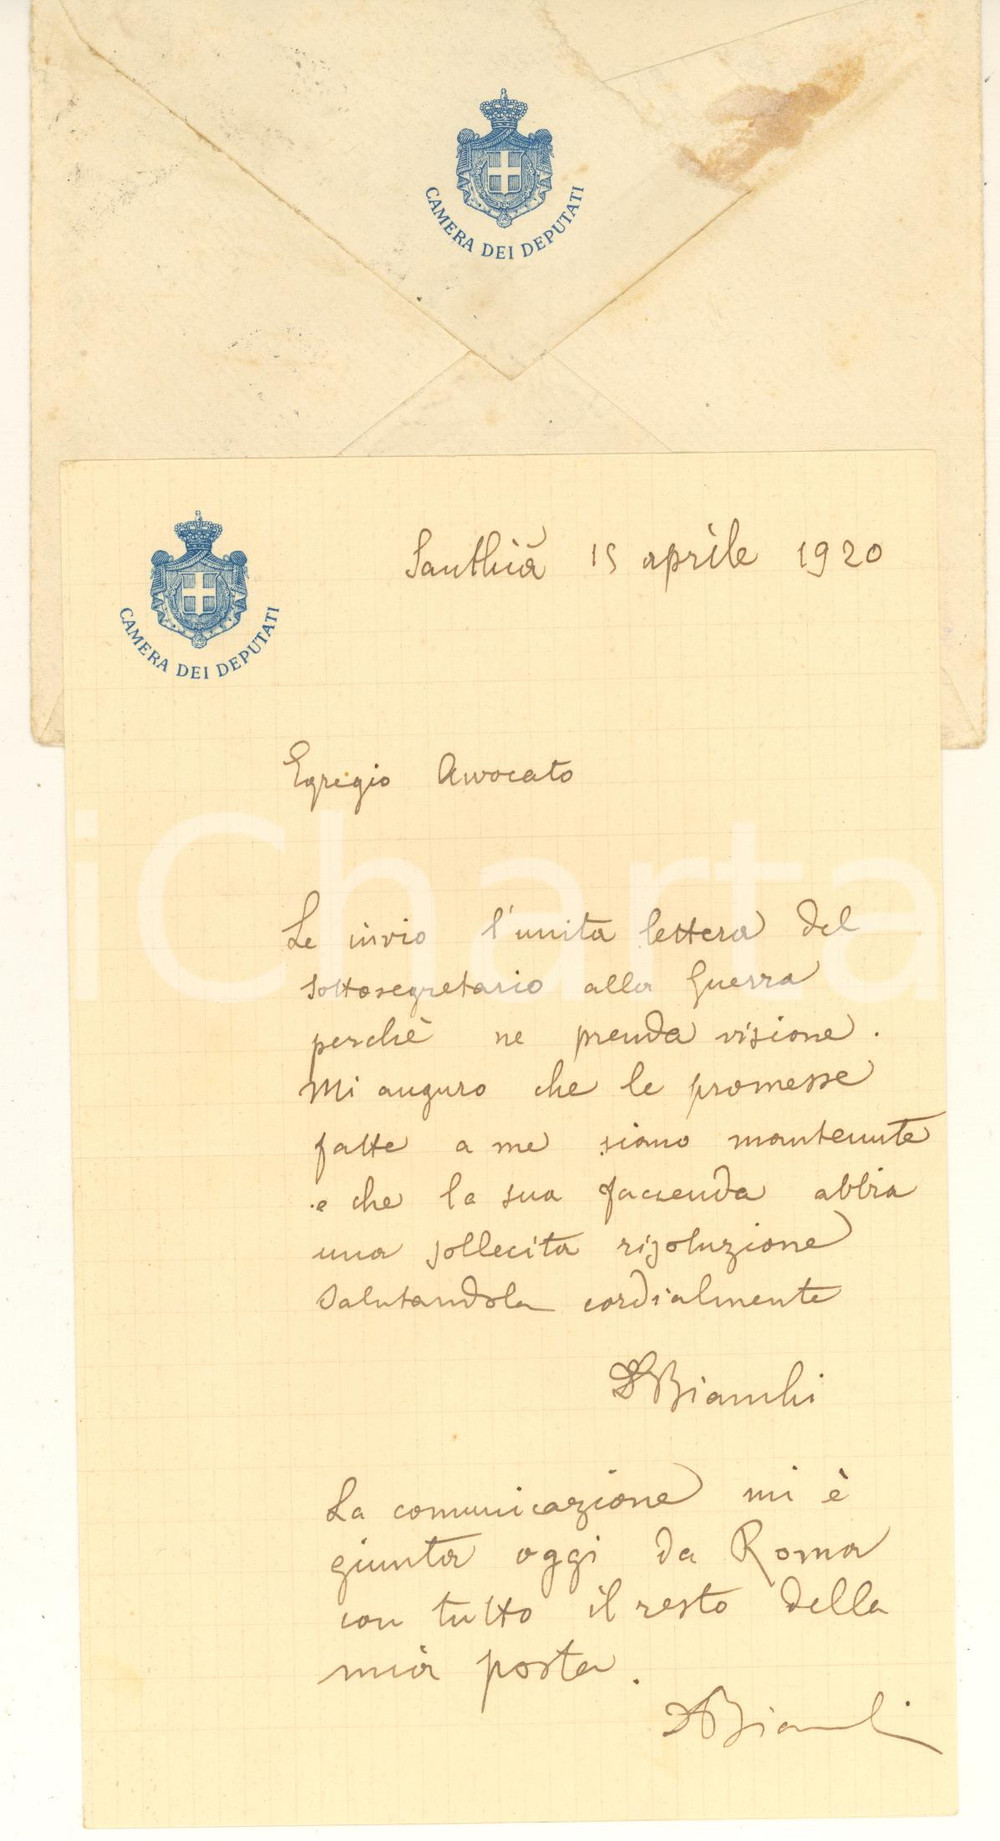 CAMERA DEI DEPUTATI
CAMERA DEI DEPUTATI
Santhià 15 aprile 1920
Egregio Avvocato
Le invio l'unita lettera del
sottosegretario alla Guerra
perchè ne prenda visione.
Mi auguro che le promesse
fatte a me siano mantenute
e che la sua faccenda abbia
una sollecita risoluzione
Salutandola cordialmente
Bianchi
La comunicazione mi è
giunta oggi da Roma
con tutto il resto della
mia posta.
Bianchi
iCharta